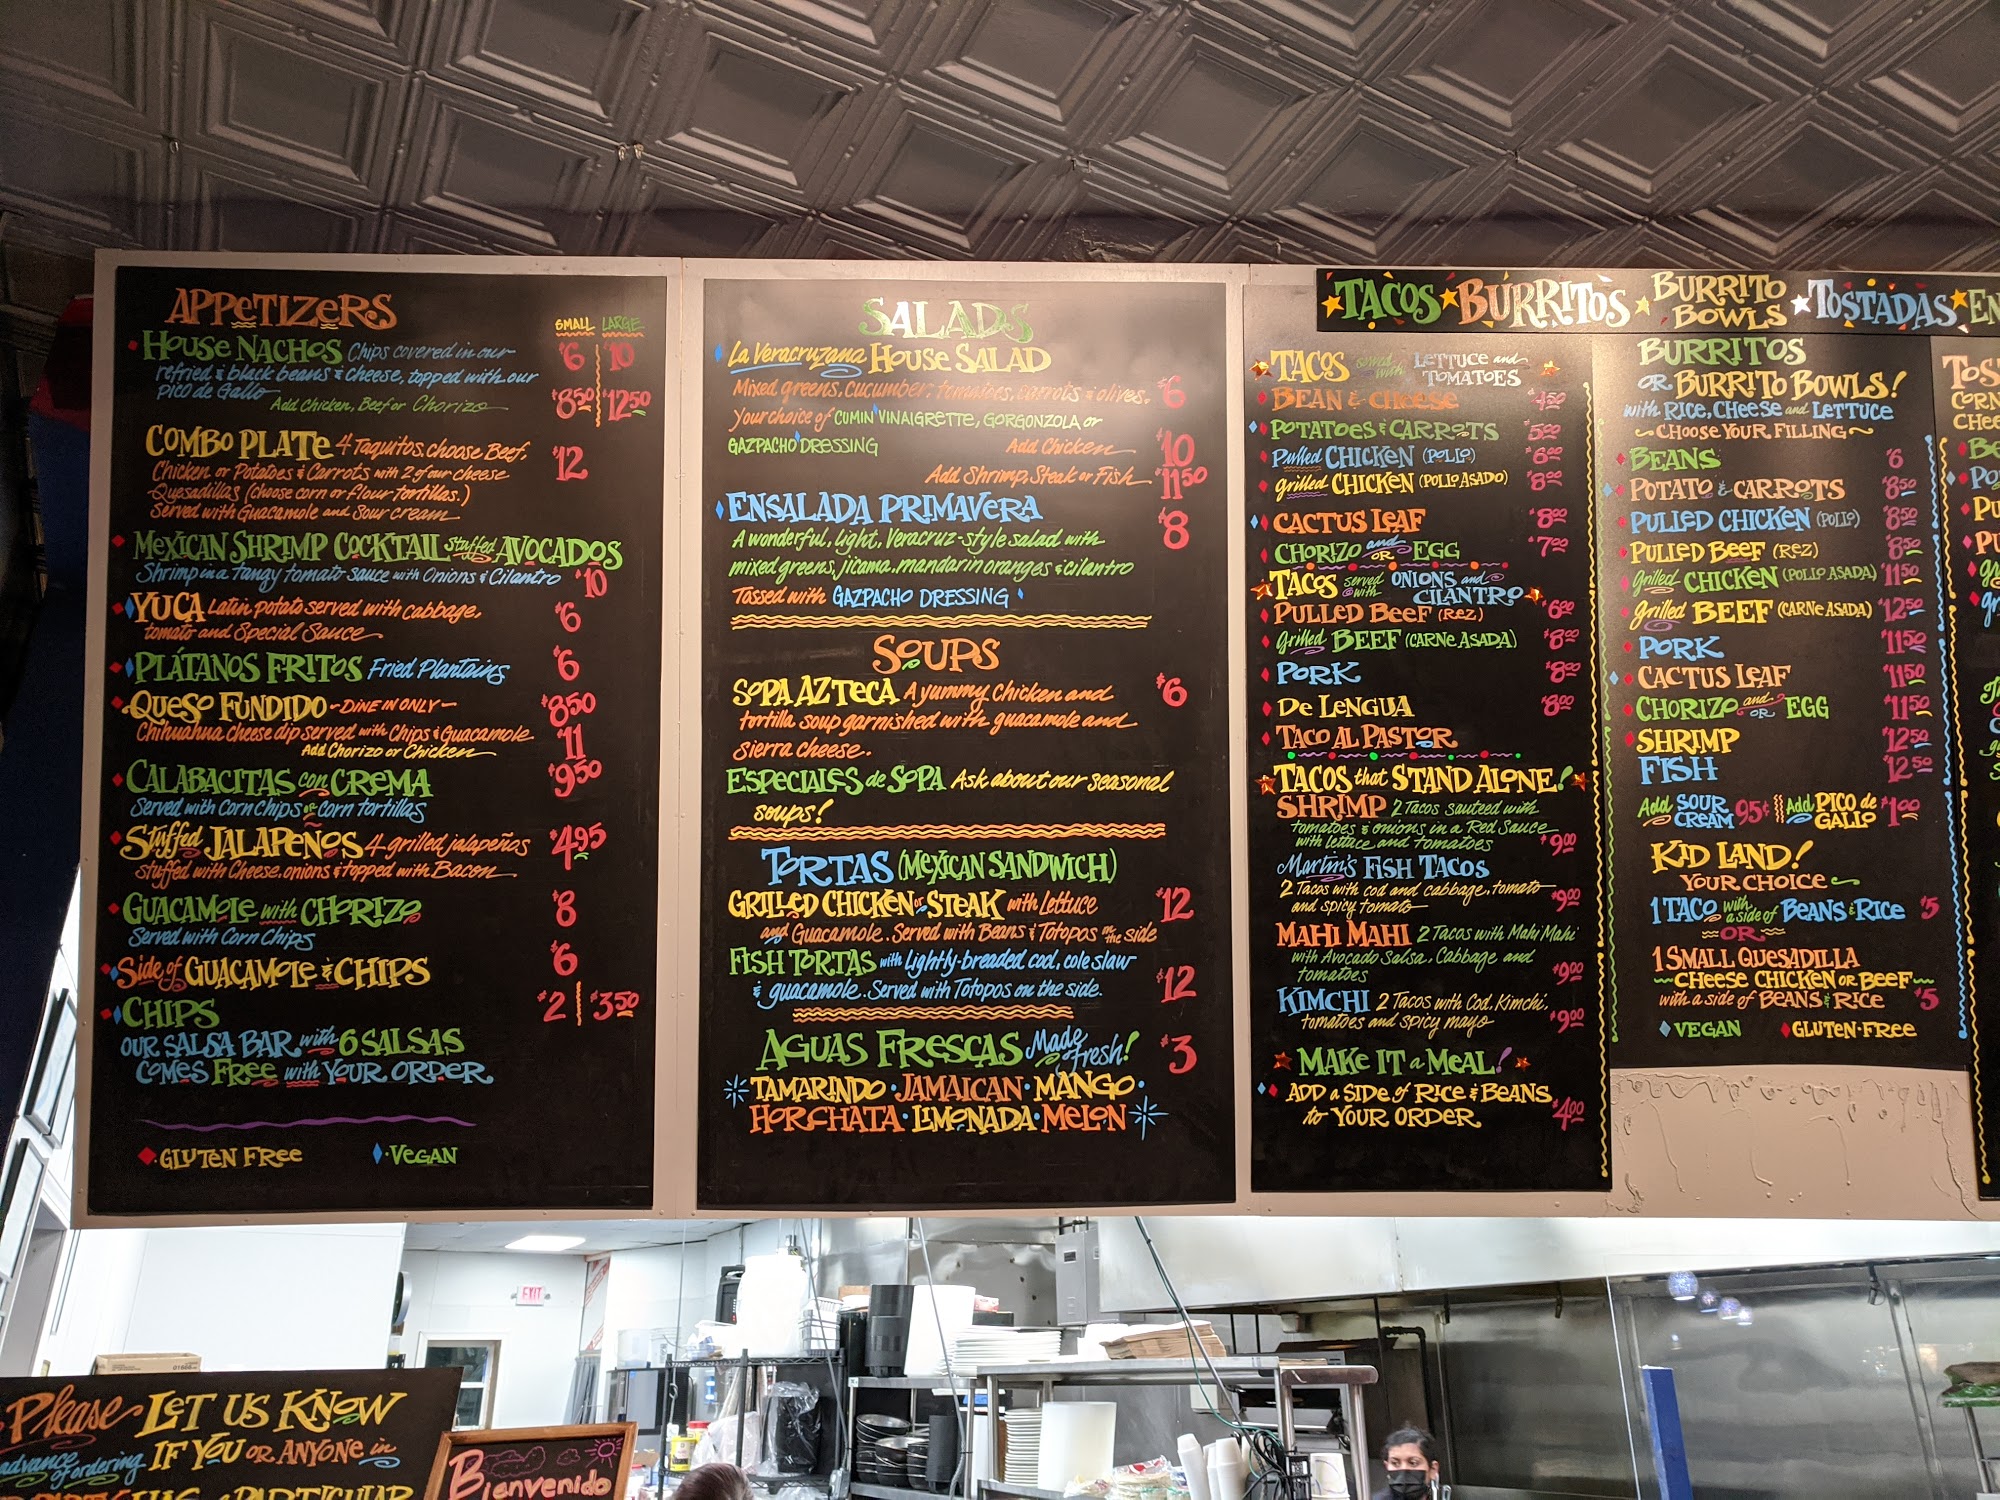 APPETIZERS
SMALL LARGE
HOUSE NACHOS Chips covered in our $6 $10
refried & black beans & cheese, topped with our
Pico de Gallo
Add Chicken, Beef or Chorizo $8.50 $12.50
COMBO PLATE 4 Taquitos, choose Beef,
Chicken or Potatoes & Carrots with 2 of our cheese $12
Quesadillas (choose corn or flour tortillas.)
Served with Guacamole and Sour cream
MEXICAN SHRIMP COCKTAIL Stuffed AVOCADOS
Shrimp in a tangy tomato sauce with Onions & Cilantro $10
YUCA Latin potato served with cabbage, $6
tomato and Special Sauce
PLÁTANOS FRITOS Fried Plantains $6
QUESO FUNDIDO ~DINE IN ONLY~ $8.50
Chihuahua cheese dip served with Chips & Guacamole
Add Chorizo or Chicken $11
CALABACITAS con CREMA $9.50
Served with Corn Chips or corn tortillas
Stuffed JALAPEÑOS 4 grilled jalapeños $4.95
stuffed with Cheese, onions & topped with Bacon
GUACAMOLE with CHORIZO $8
Served with Corn Chips
Side of GUACAMOLE & CHIPS $6
CHIPS $2 $3.50
OUR SALSA BAR with 6 SALSAS
COMES FREE with YOUR ORDER
GLUTEN FREE VEGAN
SALADS
La Veracruzana HOUSE SALAD
Mixed greens, cucumber, tomatoes, carrots & olives. $6
Your choice of CUMIN VINAIGRETTE, GORGONZOLA or
GAZPACHO DRESSING Add Chicken $10
Add Shrimp, Steak or Fish $11.50
ENSALADA PRIMAVERA $8
A wonderful, light, Veracruz-style salad with
mixed greens, jicama, mandarin oranges & cilantro
Tossed with GAZPACHO DRESSING
SOUPS
SOPA AZTECA A yummy chicken and $6
tortilla soup garnished with guacamole and
sierra cheese.
ESPECIALES de SOPA Ask about our seasonal
soups!
TORTAS (MEXICAN SANDWICH)
GRILLED CHICKEN or STEAK with Lettuce $12
and Guacamole. Served with Beans & Totopos on the side
FISH TORTAS with Lightly-breaded cod, cole slaw $12
& guacamole. Served with Totopos on the side.
AGUAS FRESCAS Made fresh! $3
TAMARINDO · JAMAICAN · MANGO ·
HORCHATA · LIMONADA · MELON
TACOS BURRITOS BURRITO BOWLS TOSTADAS EN
TACOS served with LETTUCE and TOMATOES
BEAN & CHEESE $4.50
POTATOES & CARROTS $5.00
Pulled CHICKEN (POLLO) $6.00
grilled CHICKEN (POLLO ASADO) $8.00
CACTUS LEAF $8.00
CHORIZO and OR EGG $7.00
TACOS served with ONIONS and CILANTRO
PULLED BEEF (REZ) $6.00
Grilled BEEF (CARNE ASADA) $8.00
PORK $8.00
DE LENGUA $8.00
TACO AL PASTOR
TACOS that STAND ALONE!
SHRIMP 2 Tacos sauteed with
tomatoes & onions in a Red Sauce
with lettuce and tomatoes $9.00
Martin's FISH TACOS
2 Tacos with cod and cabbage, tomato
and spicy tomato $9.00
MAHI MAHI 2 Tacos with Mahi Mahi
with Avocado Salsa, Cabbage and
tomatoes $9.00
KIMCHI 2 Tacos with Cod, Kimchi,
tomatoes and spicy mayo $9.00
MAKE IT a MEAL!
ADD A SIDE of RICE & BEANS
to YOUR ORDER $4.00
BURRITOS
OR BURRITO BOWLS!
with RICE, CHEESE and LETTUCE
~CHOOSE YOUR FILLING~
BEANS $6
POTATO & CARROTS $8.50
PULLED CHICKEN (POLLO) $8.50
PULLED BEEF (REZ) $8.50
grilled CHICKEN (POLLO ASADA) $11.50
Grilled BEEF (CARNE ASADA) $12.50
PORK $11.50
CACTUS LEAF $11.50
CHORIZO and OR EGG $11.50
SHRIMP $12.50
FISH $12.50
Add SOUR CREAM 95¢ Add PICO de GALLO $1.00
KID LAND!
YOUR CHOICE
1 TACO with a side of BEANS & RICE $5
OR
1 SMALL QUESADILLA
CHEESE CHICKEN OR BEEF
with a side of BEANS & RICE $5
VEGAN GLUTEN-FREE
EXIT
Please LET US KNOW
advance of ordering IF YOU OR ANYONE in
PARTICULAR
Bienvenido